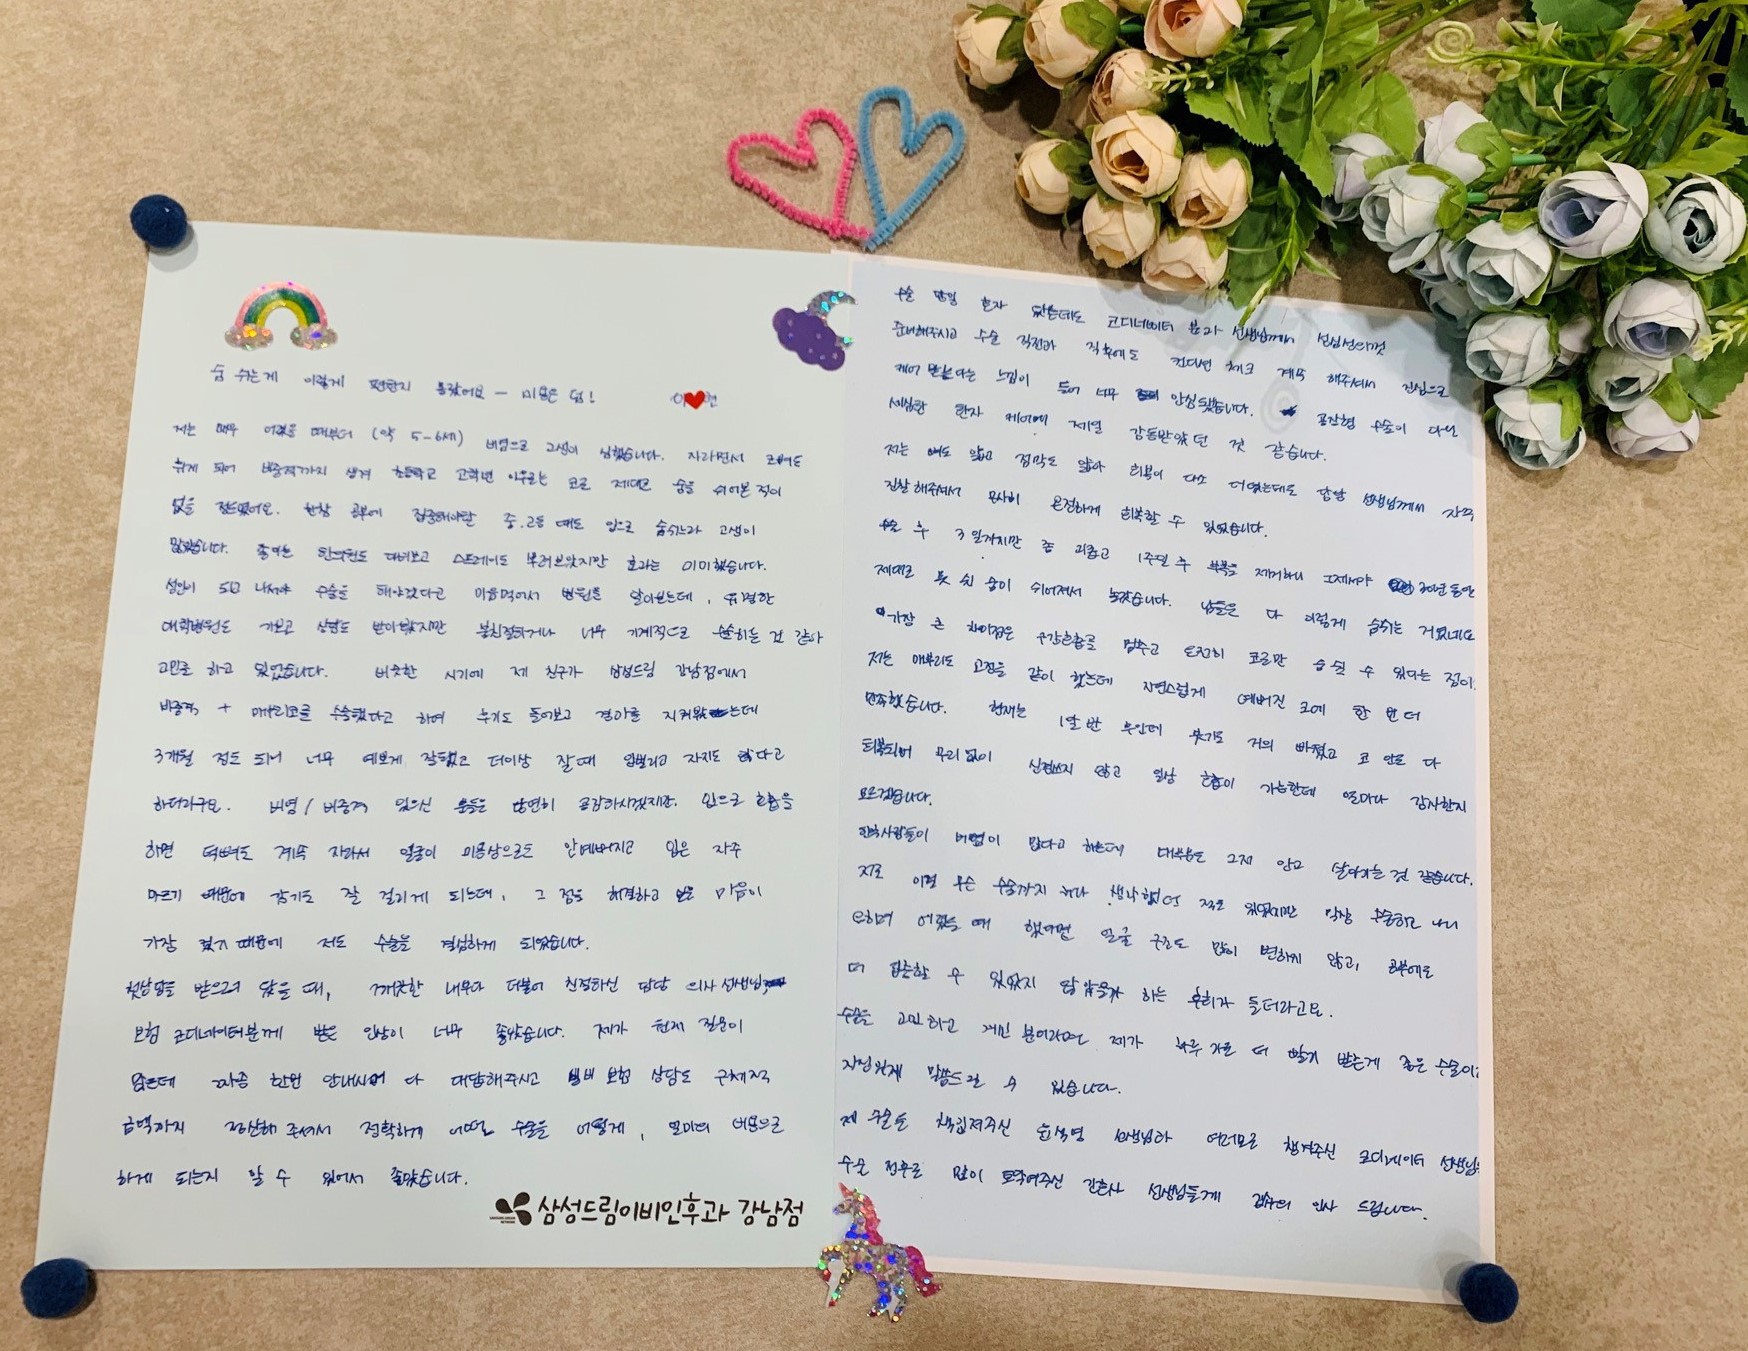 숨 쉬는게 이렇게 편한지 몰랐어요 - 미용은 덤!
저는 매우 어렸을 때부터 (약 5-6세) 비염으로 고생이 심했습니다. 자라면서 코뼈도
휘게 되어 비중격까지 생겨 초등학교 고학년 이후로는 코로 제대로 숨을 쉬어본 적이
없을 정도였어요. 한창 공부에 집중해야할 중.고등 때도 입으로 숨쉬느라 고생이
많았습니다. 좋다는 한의원도 다녀보고 스프레이도 뿌려보았지만 효과는 미미했습니다.
성인이 되고 나서야 수술을 해야겠다고 마음먹어서 병원을 알아보는데, 유명한
대학병원도 가보고 상담도 받아봤지만 불친절하거나 너무 기계적으로 수술하는 것 같아
고민을 하고 있었습니다. 비슷한 시기에 제 친구가 삼성드림 강남점에서
비중격 + 매부리코를 수술했다고 하여 후기도 들어보고 경과를 지켜봤는데
3개월 정도 되니 너무 예쁘게 잘됐고 더이상 잘때 입벌리고 자지도 않다고
하더라구요. 비염/비중격 있으신 분들은 당연히 공감하시겠지만, 입으로 호흡을
하면 턱뼈도 계속 자라서 얼굴이 미용상으로도 안예뻐지고 입은 자주
마르기 때문에 감기도 잘 걸리게 되는데, 그 점을 해결하고 싶은 마음이
가장 컸기 때문에 저도 수술을 결심하게 되었습니다.
첫상담을 받으러 갔을 때, 깨끗한 내부와 더불어 친절하신 담당 의사 선생님,
보험 코디네이터분께 받은 인상이 너무 좋았습니다. 제가 원체 질문이
많은데 짜증 한번 안내시며 다 대답해주시고 실비 보험 상담도 구체적
금액까지 정산해 주셔서 정확하게 어떤 수술을 어떻게, 얼마의 비용으로
하게 되는지 알 수 있어서 좋았습니다.
삼성드림이비인후과 강남점
수술 당일 혼자 갔는데도 코디네이터 분과 선생님께서 성심성의껏
준비해주시고 수술 직전과 직후에도 컨디션 체크 계속 해주셔서 진심으로
케어 받는다는 느낌이 들어 너무 안심됐습니다. 공장형 수술이 아닌
세심한 환자 케어에 제일 감동받았던 것 같습니다.
저는 뼈도 얇고 점막도 얇아 회복이 다소 더뎠는데도 담당 선생님께서 자주
진찰해주셔서 무사히 온전하게 회복할 수 있었습니다.
수술 후 3일까지만 좀 괴롭고 1주일 후 부목을 제거하니 그제서야 30년 동안
제대로 못 쉰 숨이 쉬어져서 놀랐습니다. 남들은 다 이렇게 숨쉬는 거였네요
가장 큰 차이점은 구강호흡을 멈추고 온전히 코로만 숨 쉴 수 있다는 점이
저는 매부리도 교정을 같이 했는데 자연스럽게 예뻐진 코에 한 번 더
만족했습니다. 현재는 1달 반 후인데 붓기도 거의 빠졌고 코 안도 다
회복되어 무리없이 신경쓰지 않고 일상 호흡이 가능한데 얼마나 감사한지
모르겠습니다.
한국사람들이 비염이 많다고 하는데 대부분도 그저 안고 살아가는 것 같습니다.
저도 이걸 무슨 수술까지 하나 생각했던 적도 있었지만 막상 수술하고 나니
오히려 어렸을 때 했더라면 얼굴 구조도 많이 변하지 않고, 공부에도
더 집중할 수 있었지 않았을까 하는 후회가 들더라고요.
수술을 고민하고 계신 분이라면, 제가 하루 라도 더 빨리 받는게 좋은 수술이라고
자신있게 말씀드릴 수 있습니다.
제 수술을 책임져주신 선생님과 여러모로 챙겨주신 코디네이터 선생님,
수술 전후로 많이 도와주신 간호사 선생님들께 감사의 인사 드립니다.